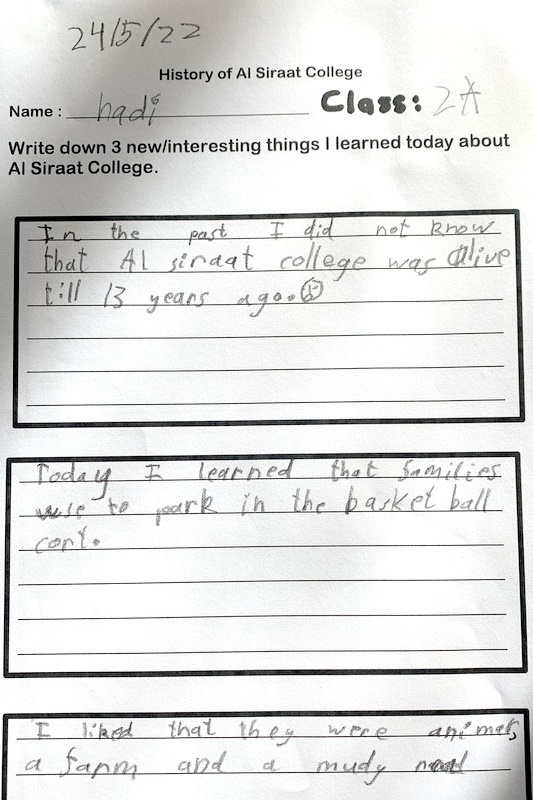 24/5/22
History of Al Siraat College
Name : hadi Class: 2A
Write down 3 new/interesting things I learned today about
Al Siraat College.
In the past I did not know
that Al siraat college was alive
till 13 years ago.
Today I learned that families
use to park in the basket ball
cort.
I liked that they were animels
a farm and a mudy